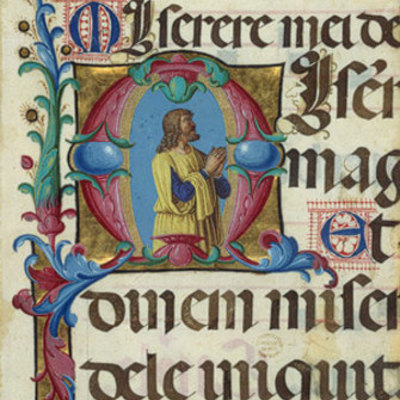 Miserere mei de
Misér
mag
Et
dinem miser
dele iniquit